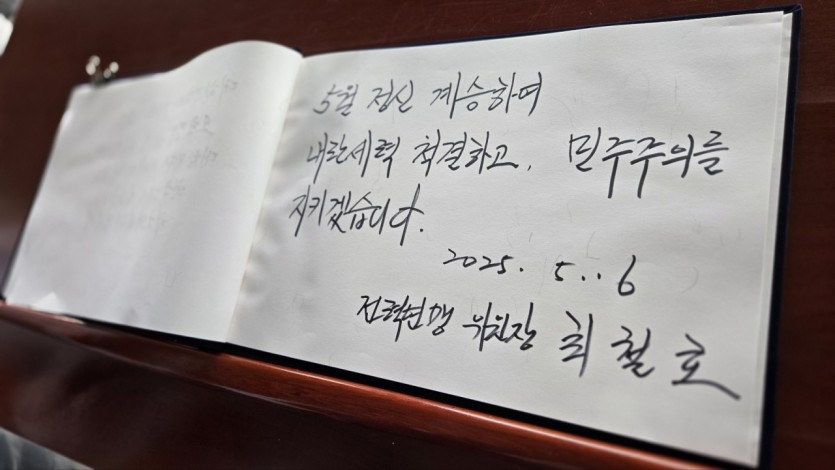 5월 정신 계승하며
내란세력 척결하고, 민주주의를
지키겠습니다.
2025. 5.. 6
전력연맹 위원장 최철호